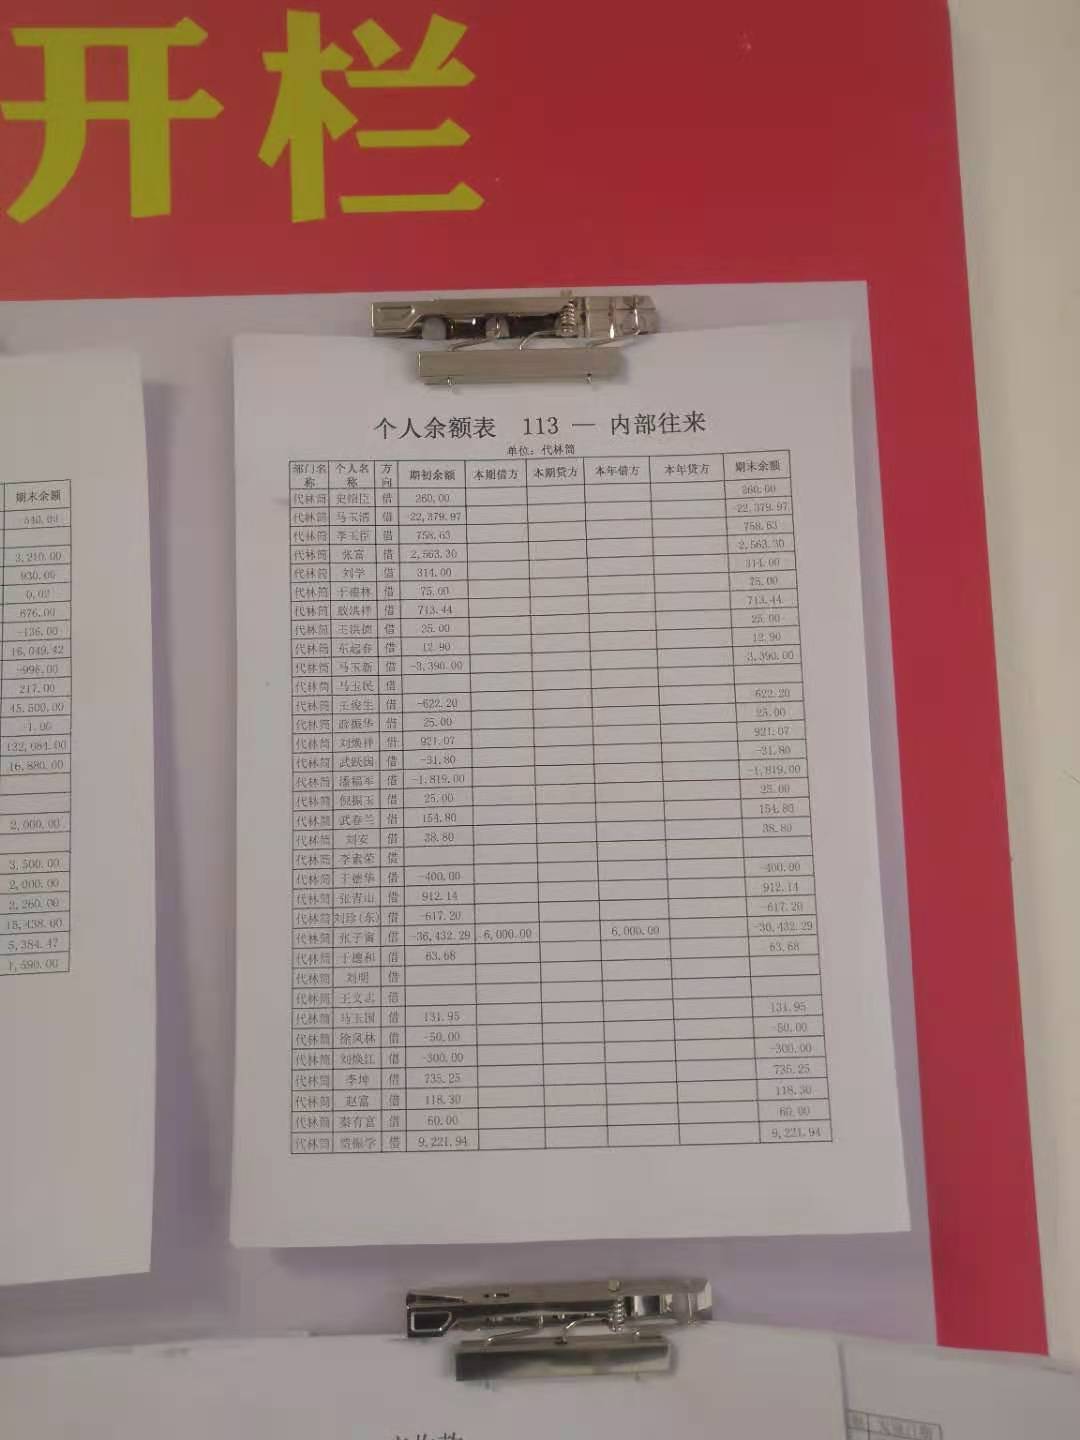 开栏
个人余额表 113 — 内部往来
单位：代林筒
部门名称 个人名称 方向 期初余额 本期借方 本期贷方 本年借方 本年贷方 期末余额
代林筒 借 260.00 260.00
代林筒 马玉清 借 -22,379.97 -22,379.97
代林筒 李玉臣 借 758.63 758.63
代林筒 张富 借 2,563.30 2,563.30
代林筒 刘学 借 314.00 314.00
代林筒 于德林 借 75.00
代林筒 殷洪祥 借 713.44 713.44
代林筒 王洪德 借 25.00 25.00
代林筒 东起春 借 12.90 12.90
代林筒 马玉新 借 -3,390.00 -3,390.00
代林筒 马玉民 借
代林筒 王俊生 借 -622.20 -622.20
代林筒 殷振华 借 25.00 25.00
代林筒 刘焕祥 借 921.07 921.07
代林筒 武跃国 借 -31.80 -31.80
代林筒 潘福军 借 -1,819.00 -1,819.00
代林筒 倪振玉 借 25.00 25.00
代林筒 武春兰 借 154.80 154.80
代林筒 刘安 借 38.80 38.80
代林筒 李素荣 借
代林筒 于德华 借 -400.00 -400.00
代林筒 张青山 借 912.14 912.14
代林筒 刘珍(东) 借 -617.20 -617.20
代林筒 借 -36,432.29 6,000.00 6,000.00 -30,432.29
代林筒 于德和 借 63.68 63.68
代林筒 刘明 借
代林筒 王文志 借
代林筒 马玉国 借 131.95 131.95
代林筒 徐凤林 借 -50.00 -50.00
代林筒 刘焕江 借 -300.00 -300.00
代林筒 李坤 借 735.25 735.25
代林筒 赵富 借 118.30 118.30
代林筒 秦有富 借 60.00 60.00
代林筒 贾振学 借 9,221.94 9,221.94
期末余额
540.00
3,210.00
930.00
0.02
876.00
-136.00
16,049.42
-996.00
217.00
45,500.00
-1.00
132,084.00
16,880.00
2,000.00
3,500.00
2,000.00
2,260.00
15,438.00
5,384.47
1,590.00